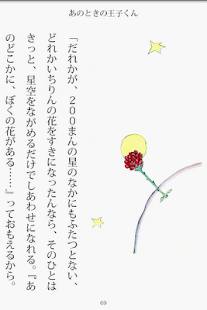 あのときの王子くん
「だれかが、200まんの星のなかにもふたつとない、
どれかいちりんの花をすきになったんなら、そのひとは
きっと、星空をながめるだけでしあわせになれる。『あ
のどこかに、ぼくの花がある……』っておもえるから。
69